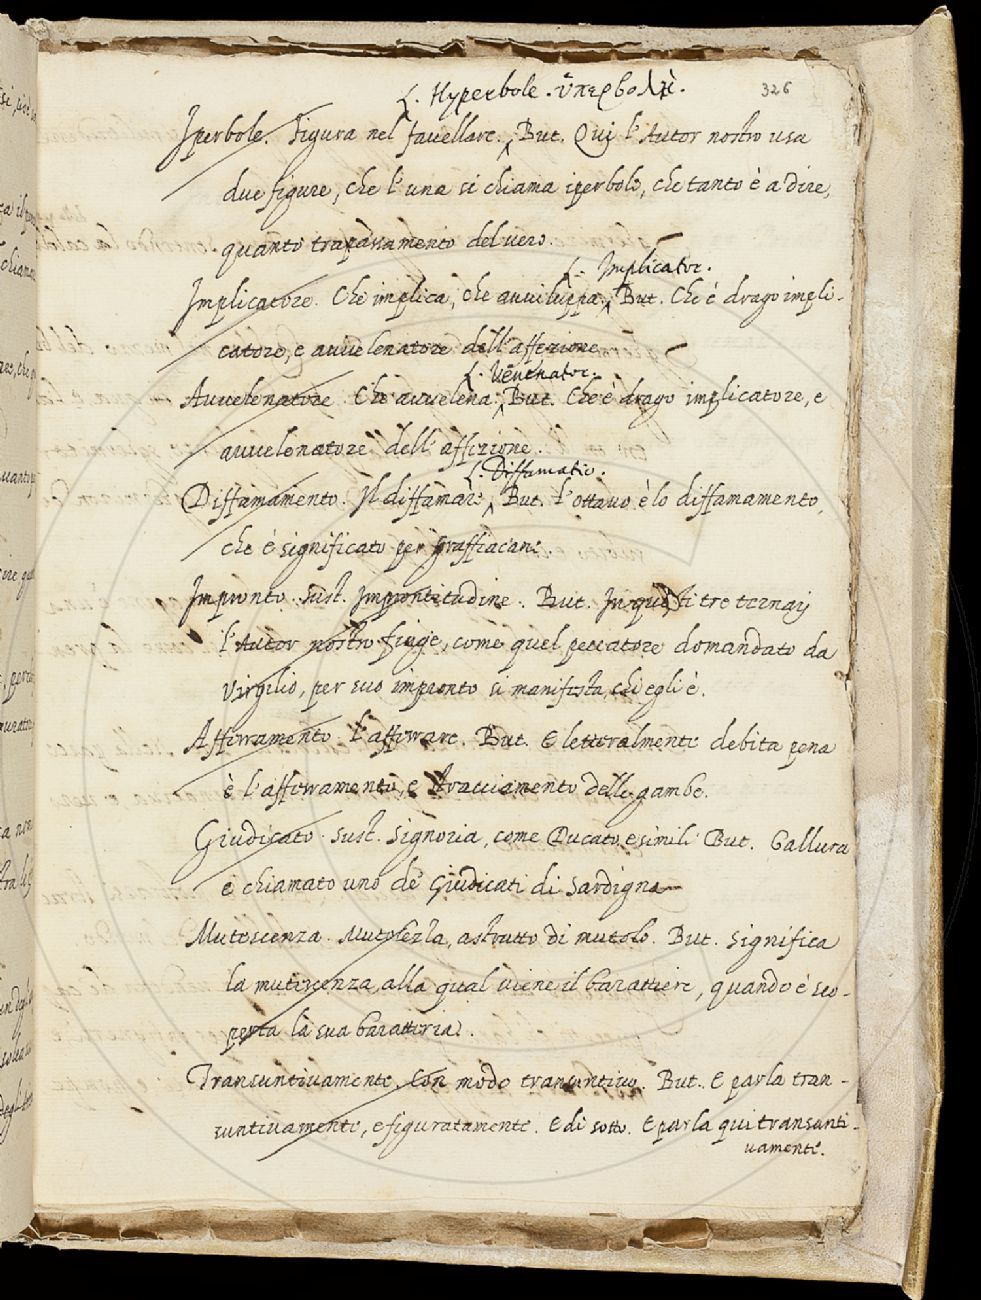 L. Hyperbole. ὑπερβολὴ.
326
Iperbole. Figura nel favellare. But. Qui l'Autor nostro usa
due figure, che l'una si chiama iperbole, che tanto è a dire,
quanto trapassamento del vero.
L. Implicator.
Implicatore. Che implica, che avviluppa. But. Che è drago impli-
catore, e avvelenatore dell'affezione
L. Venenator.
Avvelenatore Che avvelena. But. Che è drago implicatore, e
avvelenatore dell'affezione.
L. Diffamatio.
Diffamamento. Il diffamare. But. L'ottavo è lo diffamamento,
che è significato per Graffiacane
Impronto. Sust. Improntitudine. But. In questi tre ternarj
l'Autor nostro finge, come quel peccatore domandato da
Virgilio, per suo impronto si manifesta, chi egli è.
Afferramento L'afferrare. But. E letteralmente debita pena
è l'afferramento, e stracciamento delle gambe.
Giudicato. Sust. Signoria, come Ducato, e simili But. Gallura
è chiamato uno de' Giudicati di Sardigna
Mutescenza. Mutolezza, astratto di mutolo. But. Significa
la mutescenza, alla qual viene il barattiere, quando è sco-
perta la sua baratteria.
Transuntivamente, Con modo transuntivo. But. E parla tran-
suntivamente, e figuratamente. E di sotto. E parla qui transunti-
vamente.